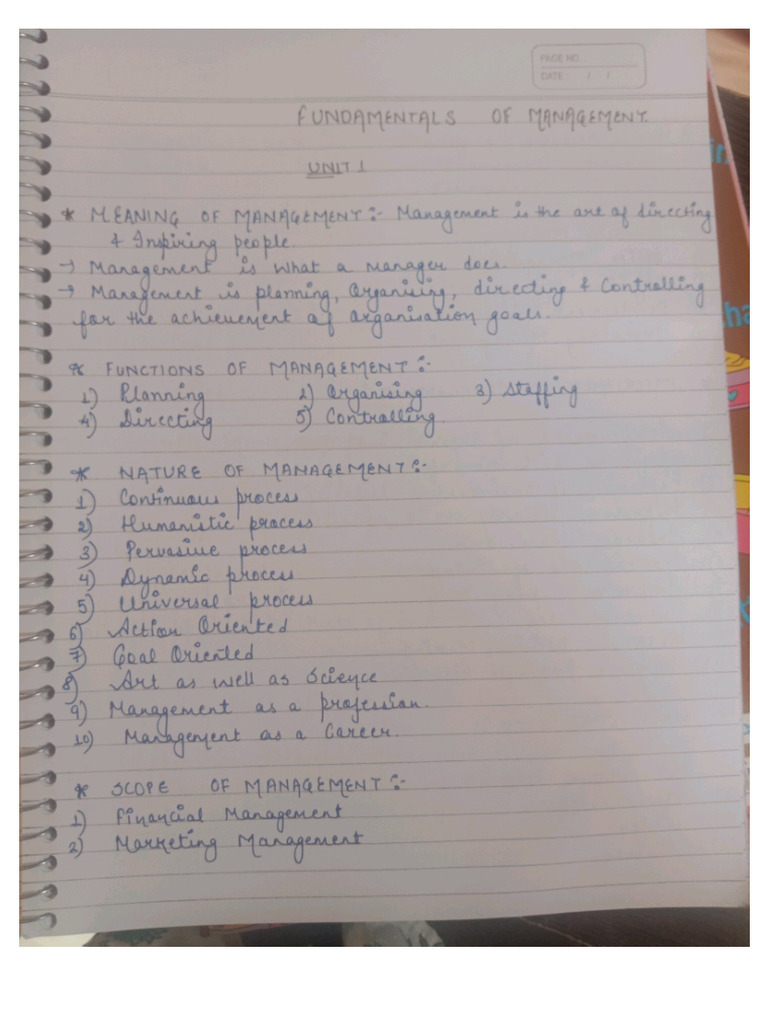 PAGE NO.:
DATE: / /
FUNDAMENTALS OF MANAGEMENT.
UNIT 1
* MEANING OF MANAGEMENT:- Management is the art of directing
& Inspiring people.
→ Management is what a manager does.
→ Management is planning, Organising, directing & Controlling
for the achievement of organisation goals.
* FUNCTIONS OF MANAGEMENT:-
1) Planning 2) Organising 3) Staffing
4) Directing 5) Controlling.
* NATURE OF MANAGEMENT:-
1) Continuous process
2) Humanistic process
3) Pervasive process
4) Dynamic process
5) Universal process
6) Action Oriented
7) Goal Oriented
8) Art as well as Science
9) Management as a profession.
10) Management as a Career.
* SCOPE OF MANAGEMENT:-
1) Financial Management
2) Marketing Management